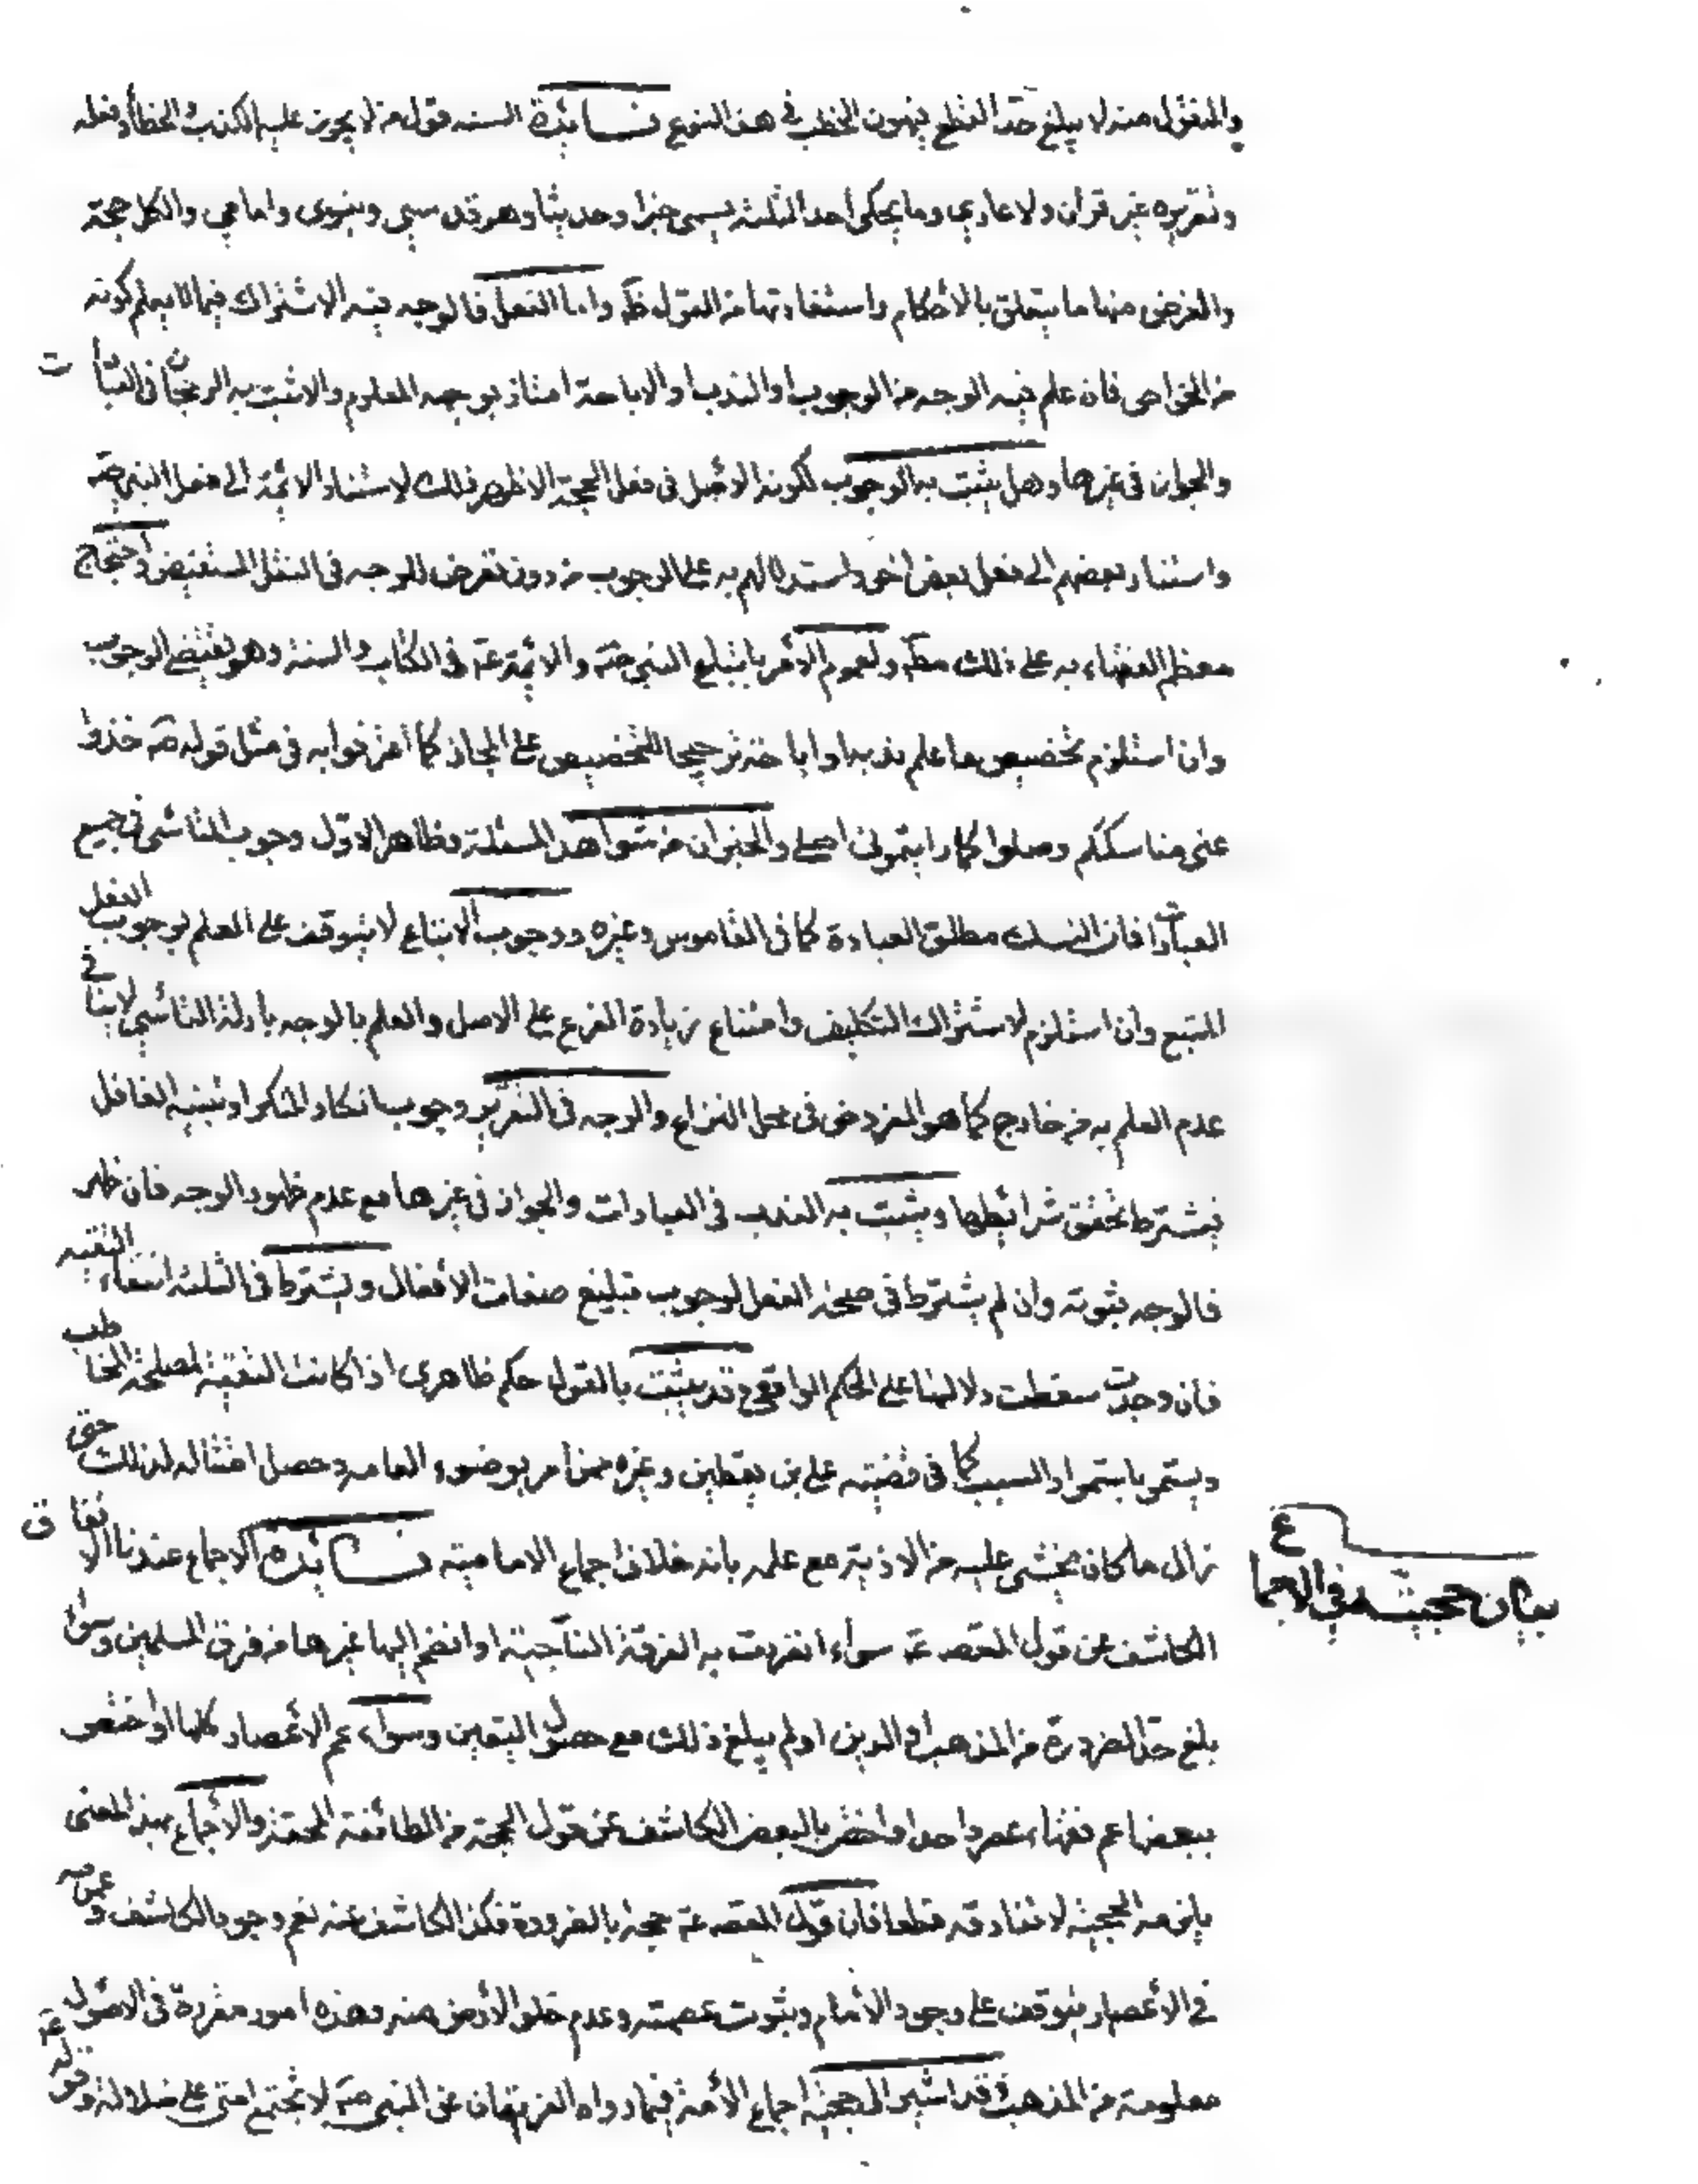 والمنقول منه لا يبلغ حدّ القطع فيهون الخطب في هذا النوع فائدة السنه قول من لا يجوز عليه الكذب والخطأ وفعله
وتقريره غير قرآن ولا عادي وما يحكى أحد الثلثه يسمى خبرا وحديثا وهو قدسي ونبوي وامامي والكل حجة
والغرض منها ما يتعلق بالأحكام واستفادتها من القول ظ واما الفعل فالوجه فيه الاشتراك فيما لا يعلم كونه
من الخواص فان علم فيه الوجه من الوجوب او الندب او الاباحة امتاز بوجهه المعلوم والا ثبت به الرجحان في العبادات
والجواز في غيرها وهل يثبت به الوجوب لكونه الأصل في فعل الحجة الاظهر ذلك لاستناد الائمة الى فعل النبي ص
واستناد بعضهم الى فعل بعض اخر واستدلالهم به على الوجوب من دون تعرض للوجه في النقل المستفيض واحتجاج
معظم الفقهاء به على ذلك مط ولعموم الأمر باتباع النبي ص والائمة ع في الكتاب والسنة وهو يقتضي الوجوب
وان استلزم تخصيص ما علم ندبه او اباحته ترجيحا للتخصيص على المجاز كما اعترفوا به في مثل قوله ص خذوا
عني مناسككم وصلوا كما رايتموني اصلي والخبران من شواهد المسئلة وظاهر الاوّل وجوب التاسي في جميع
العبادات فان النسك مطلق العبادة كما في القاموس وغيره ووجوب الاتباع لا يتوقف على العلم بوجوب الفعل
المتبع وان استلزم لاشتراك التكليف وامتناع زيادة الفرع على الاصل والعلم بالوجه بادلة التاسي لا ينافي
عدم العلم به من خارج كما هو المفروض في محل النزاع والوجه في التقرير وجوب انكار المنكر او تنبيه الغافل
فيشترط تحقق شرائطها ويثبت به الندب في العبادات والجواز في غيرها مع عدم ظهور الوجه فان ظهر
فالوجه ثبوته وان لم يشترط في صحة الفعل لوجوب تبليغ صفات الأفعال ويشترط في الثلثه انتفاء التقيه
فان وجدت سقطت دلالتها على الحكم الواقعي وقد يثبت بالقول حكم ظاهري اذا كانت التقية لمصلحة المخاطب
ويستمر باستمرار السبب كما في قضية علي بن يقطين وغيره ممن امر بوضوء العامه وحصل امتثاله لذلك حتى
زال ما كان يخشى عليه من الاذية مع علمه بانه خلاف اجماع الامامية فائدة الاجماع عندنا الاتفاق
الكاشف عن قول المعصوم ع سواء انفردت به الفرقة الناجية او انضم اليها غيرها من فرق المسلمين وسواء
بلغ حدّ الضرورة من المذهب او الدين او لم يبلغ ذلك مع حصول اليقين وسواء عم الاعصار كلها او اختص
ببعضها عم فقهاء عصر واحد او اختص بالبعض الكاشف عن قول الحجة من الطائفة المحقة والاجماع بهذا المعنى
يلزمه الحجية لا تفارقه قطعا فان قول المعصوم ع حجة بالضرورة فكذا الكاشف عنه نعم وجود الكاشف وعمومه
في الأعصار يتوقف على وجود الأمام وثبوت عصمته وعدم خلو الأرض منه وهذه امور مقررة في الاصول
معلومة من المذهب وقد اشير الى حجية اجماع الأمة فيما رواه الفريقان عن النبي ص لا تجتمع امتي على ضلالة وقوله ع
بيان حجيته في الاجماع